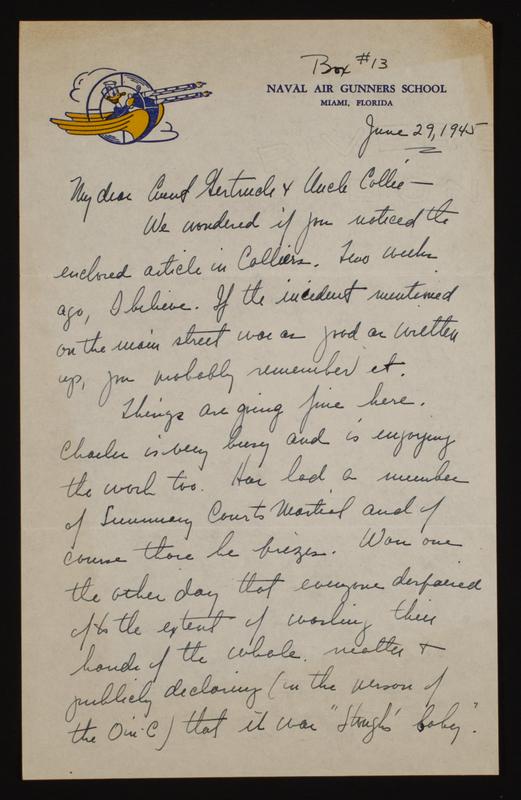 Box #13
NAVAL AIR GUNNERS SCHOOL
MIAMI, FLORIDA
June 29, 1945
My dear Aunt Gertrude & Uncle Collie—
We wondered if you noticed the
enclosed article in Colliers. Two weeks
ago, I believe. If the incident mentioned
on the main street was as good as written
up, you probably remember it.
Things are going fine here.
Charlie is very busy and is enjoying
the work too. Has had a number
of Summary Courts Martial and of
course those he
Won one
the other day that everyone despaired
of to the extent of washing their
hands of the whole matter &
publicly declaring (in the person of
the O-in-C) that it was "Stough's baby".